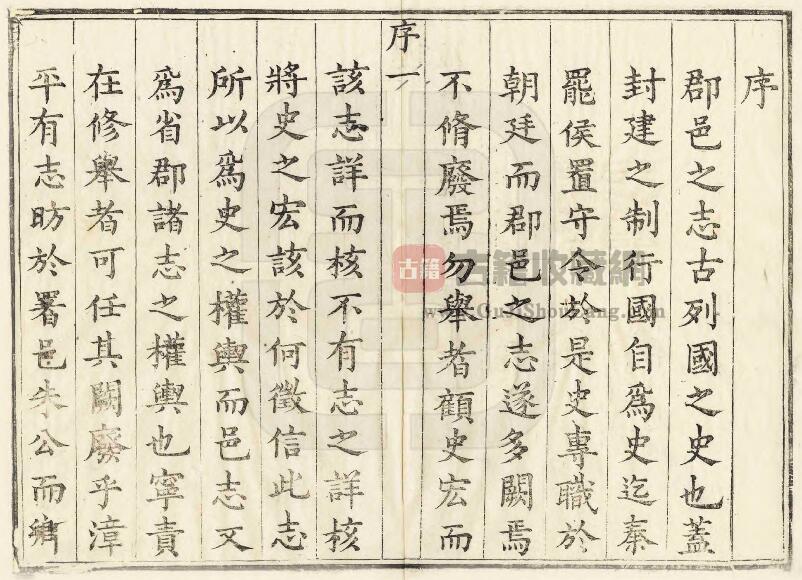 序
郡邑之志古列國之史也蓋
封建之制行國自爲史迄秦
罷侯置守令於是史專職於
朝廷而郡邑之志遂多闕焉
不脩廢焉勿舉者顧史宏而
序 一
該志詳而核不有志之詳核
將史之宏該於何徵信此志
所以爲史之權輿而邑志又
爲省郡諸志之權輿也寧責
在修舉者可任其闕廢乎漳
平有志昉於署邑朱公而
古籍
古籍收藏網
www.GuJiShouCang.com